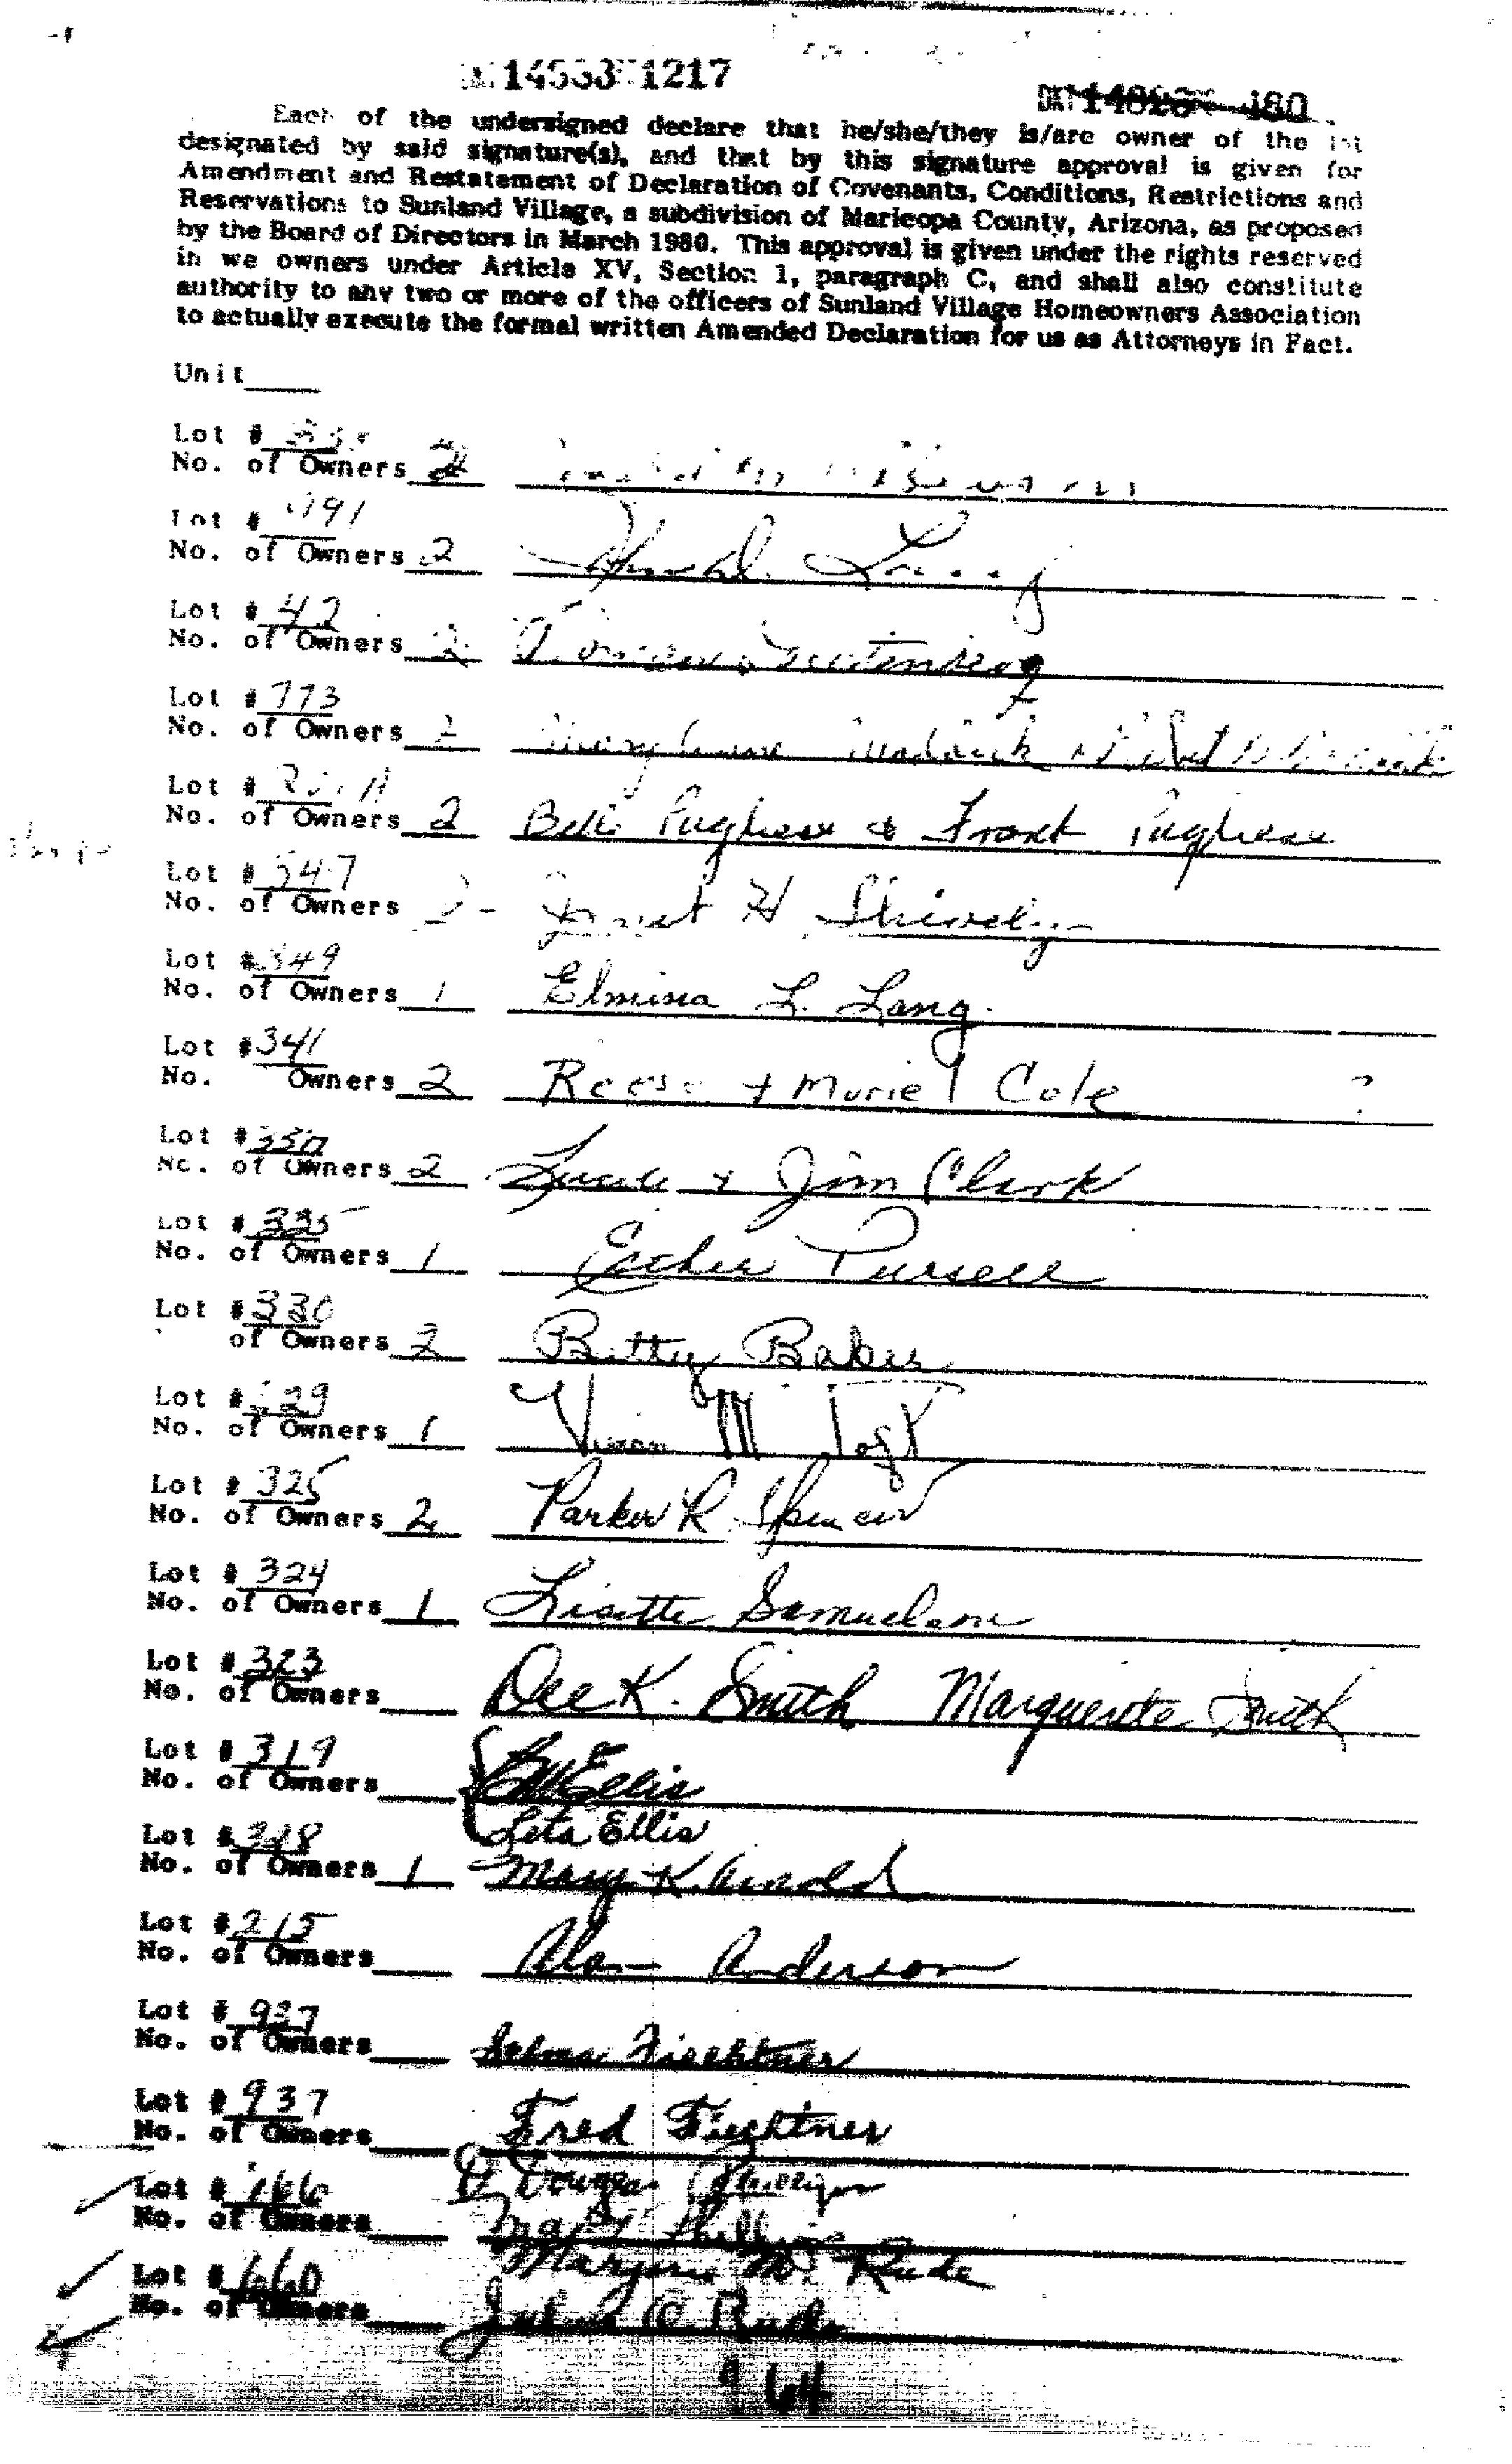 14533 1217
Each of the undersigned declare that he/she/they is/are owner of the lot
designated by said signature(s), and that by this signature approval is given for
Amendment and Restatement of Declaration of Covenants, Conditions, Restrictions and
Reservations to Sunland Village, a subdivision of Maricopa County, Arizona, as proposed
by the Board of Directors in March 1980. This approval is given under the rights reserved
in we owners under Article XV, Section 1, paragraph C, and shall also constitute
authority to any two or more of the officers of Sunland Village Homeowners Association
to actually execute the formal written Amended Declaration for us as Attorneys in Fact.
Unit
Lot #
No. of Owners 2
Lot #
No. of Owners 2
Lot # 42
No. of Owners 2
Lot # 773
No. of Owners 2
Lot #
No. of Owners 2 Pugliese & Frank Pugliese
Lot # 347
No. of Owners 2 - H Shively
Lot # 349
No. of Owners 1 Elmina L. Lang
Lot # 341
No. Owners 2 Reese + Muriel Cole ?
Lot # 350
No. of Owners 2 Lucile + Jim Clark
Lot # 335
No. of Owners 1 Esther Pursell
Lot # 330
of Owners 2 Betty Baker
Lot # 329
No. of Owners 1 Vivian M Toft
Lot # 325
No. of Owners 2 Parker R. Spencer
Lot # 324
No. of Owners 1 Lisette Samuelson
Lot # 323
No. of Owners Dee K. Smith Marguerite Smith
Lot # 319
No. of Owners Ellis
Leta Ellis
Lot # 318
No. of Owners 1 Mary K. Arnold
Lot # 215
No. of Owners Alan Anderson
Lot # 937
No. of Owners Selma Fiechtner
Lot # 937
No. of Owners Fred Fiechtner
Lot # 166
Phillips
No. of Owners Mary Phillips
Marjorie M. Rude
Lot # 660
No. of Owners Rude
64